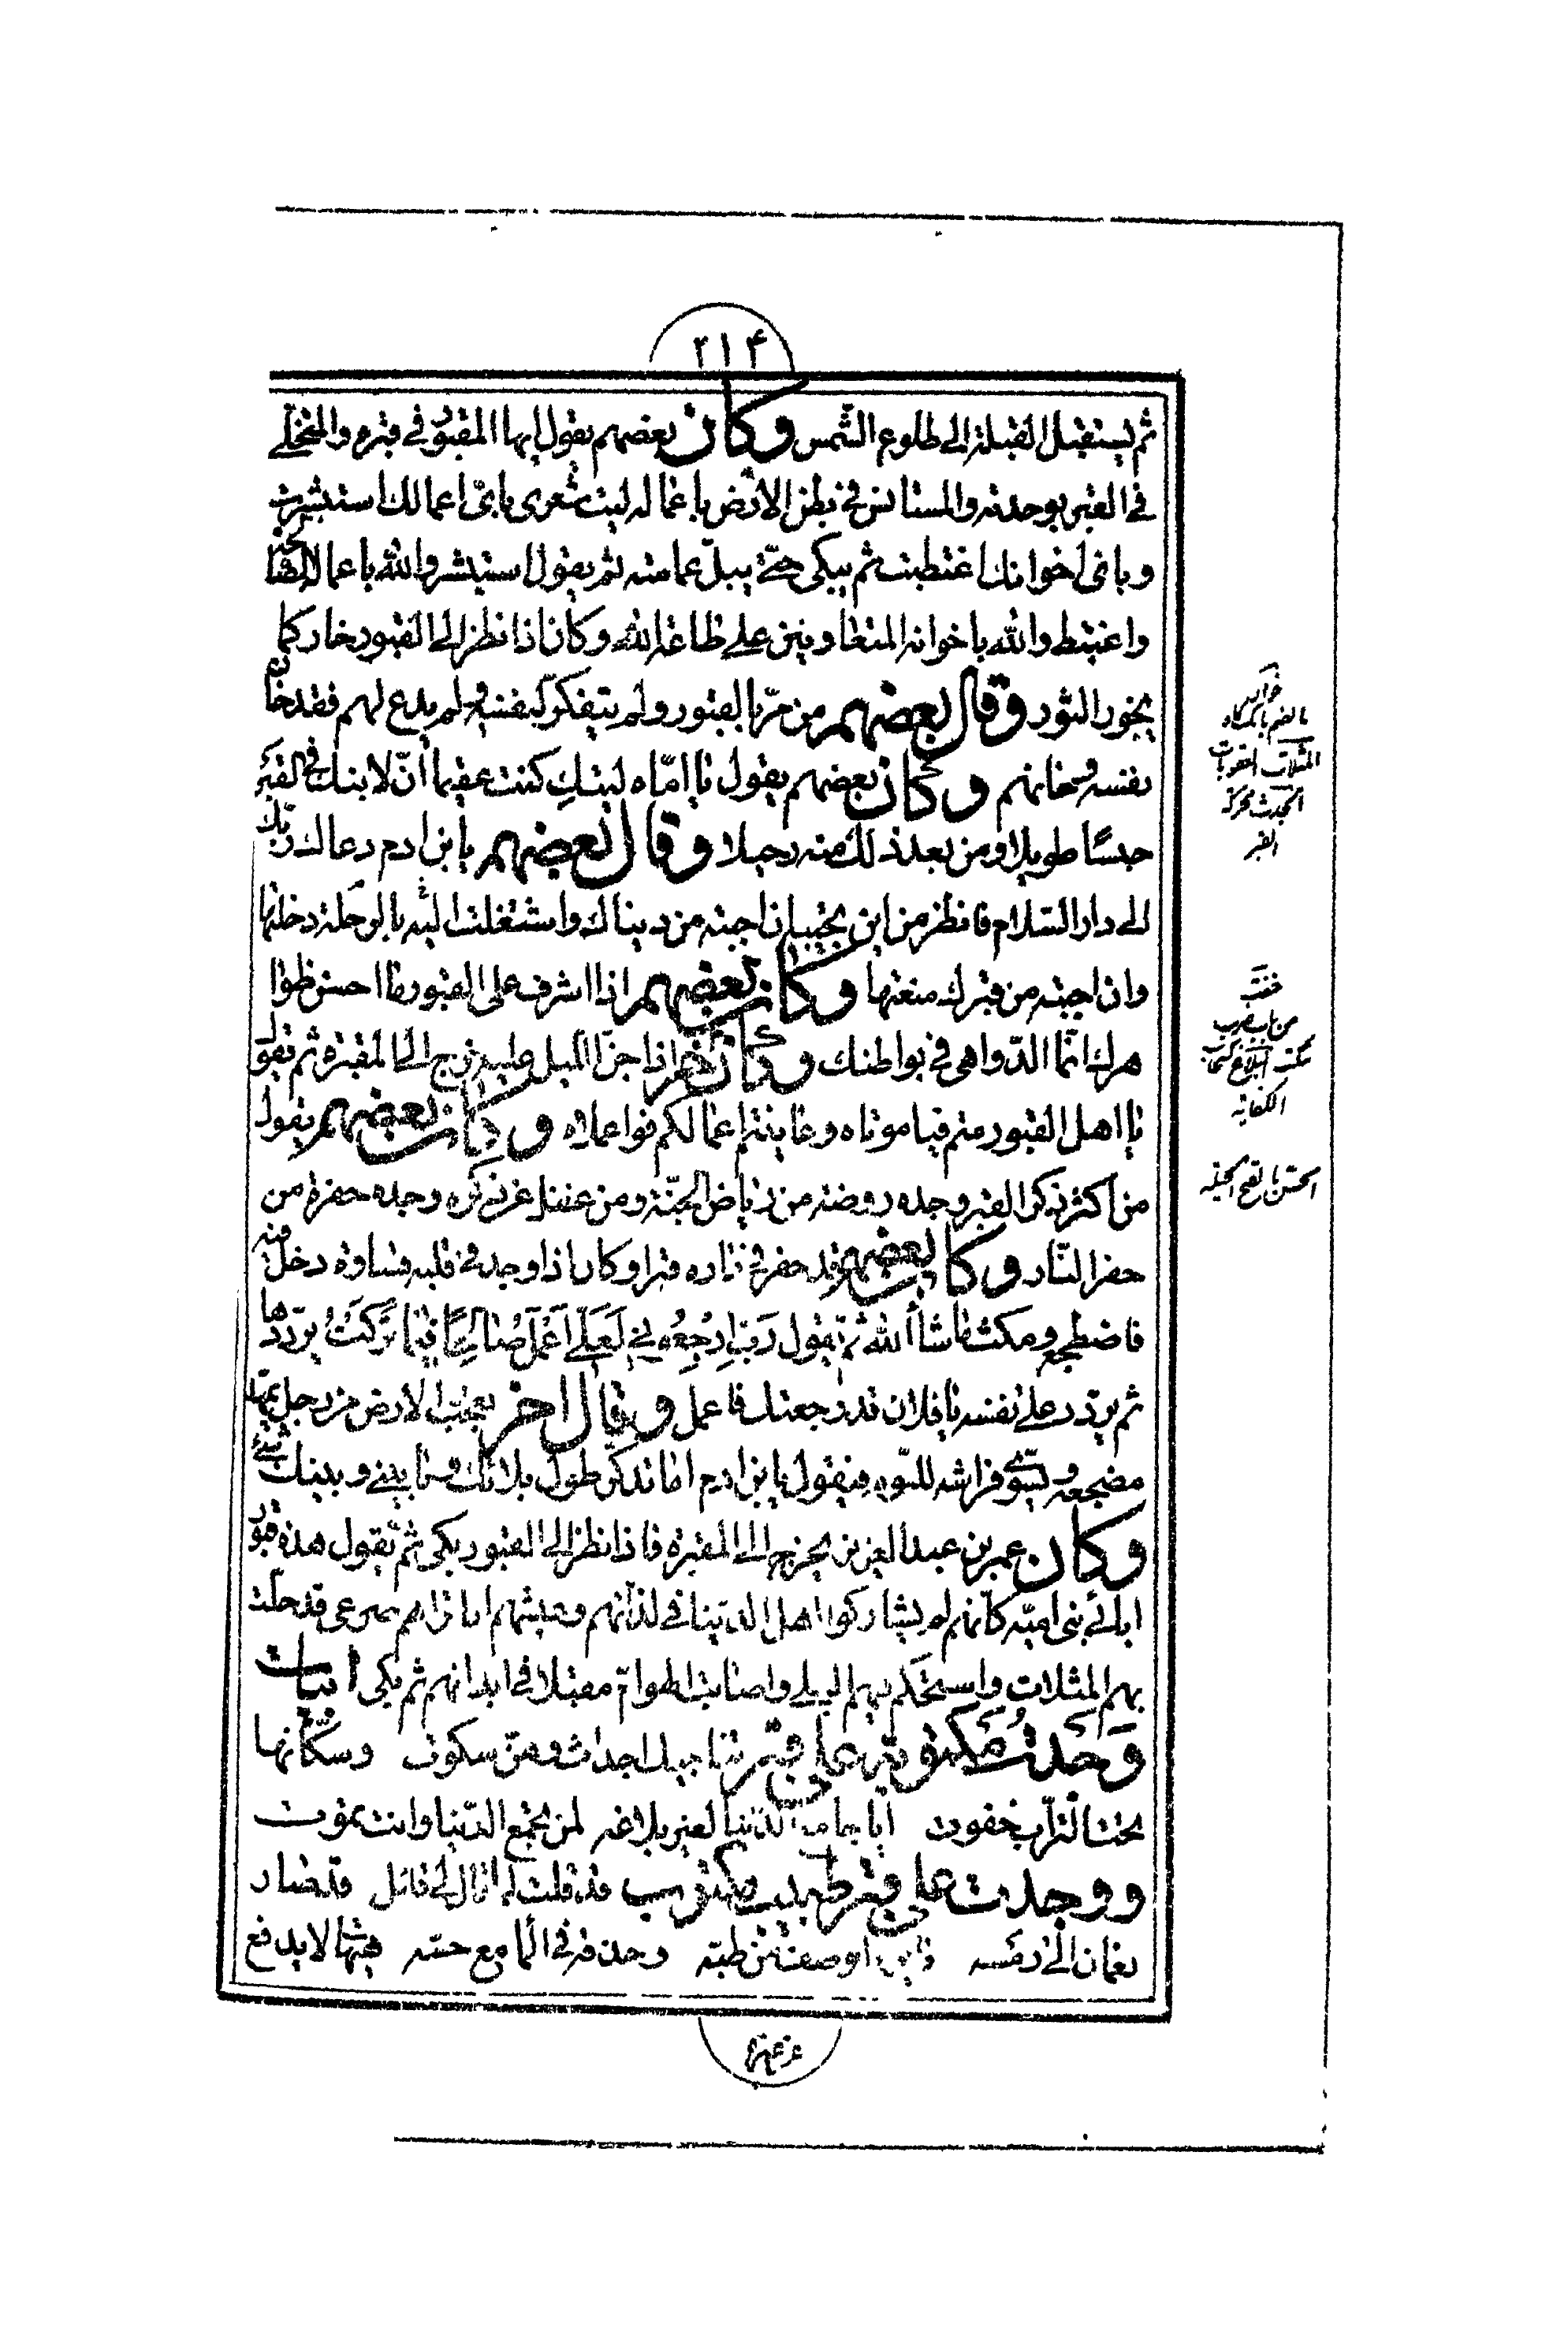 ٢١۴
ثم يستقبل القبلة الى طلوع الشّمس وكان بعضهم يقول ايها المقبور في قبره والمتخلّي
في القبر بوحدته والمستانس في بطن الارض باعماله ليت شعرى باىّ اعمالك استبشرت
وباىّ اخوانك اغتبطت ثم يبكى حتّى يبلّ عمامته ثم يقول استبشر والله باعماله الصالحة
واغتبط والله باخوانه المتعاونين على طاعة الله وكان اذا نظر الى القبور خار كما
يخور الثور وقال بعضهم من مرّ بالقبور ولم يتفكّر لنفسه ولم يدع لهم فقد خان
نفسه وخانهم وكان بعضهم يقول يا امّاه ليتكِ كنت عقيما أنّ لابنك في القبر
حبسًا طويلا ومن بعد ذلك منه رحيلا وقال بعضهم يا بن ادم دعاك ربّك
الى دار السّلام فانظر من اين تجيبه ان اجبته من دنياك واشتغلت اليه بالرحلة دخلتها
وان اجبته من قبرك منعتها وكان بعضهم اذا اشرف على القبور قال ما احسن ظواهرك
انّما الدّواهى في بواطنك وكان اخر اذا جنّ الليل عليه خرج الى المقبرة ثم يقول
يا اهل القبور متم فيا موتاه وعاينتم اعمالكم فواعملاه وكان بعضهم يقول
من اكثر ذكر القبر وجده روضة من رياض الجنّة ومن غفل عن ذكره وجده حفرة من
حفر النّار وكان بعضهم قد حفر في داره قبرا وكان اذا وجد في قلبه قساوة دخل فيه
فاضطجع ومكث ما شاء الله ثمّ يقول رَبِّ ارْجِعُونِ لَعَلّي اَعْمَلُ صَالِحًا فيما تَرَكْتُ يردّدها
ثم يردّ على نفسه يا فلان قد رجعتك فاعمل وقال اخر تعجب الارض من رجل يمهّد
مضجعه ويسوّي فراشه للنّوم فيقول يا بن ادم اما تذكر طول بلائك وما بيني وبينك شئ
وكان عمر بن عبد العزيز يخرج الى المقبرة فاذا نظر الى القبور بكى ثم يقول هذه قبور
ابائى بنى اميّة كانّهم لم يشاركوا اهل الدنيا في لذّاتهم وعيشهم اما تراهم صرعى قد حلّت
بهم المثلات واستحكم فيهم البلى واصابت الهوامّ مقيلا في ابدانهم ثم بكى ابيات
وَجَدت مكتوبة على قبر تناجيك اجداث وهنّ سكوت وسكّانها
تحت التّراب خفوت ايا جامع الدّنيا لغير بلاغه لمن تجمع الدّنيا وانت تموت
ووجدت على قبر طبيب مكتوب قد قلت لما قال لى قائل قد صار
لقمان الى رمسه فاين ما يوصف من طبّه وحذقه في الما مع حسّه هيهات لا يدفع
عن غيره
خوار
بالضم بانك گاو
المثلات العقوبات
الجدث محركة
القبر
خفت
من باب ضرب
سكت البلاغ كسحاب
الكفاية